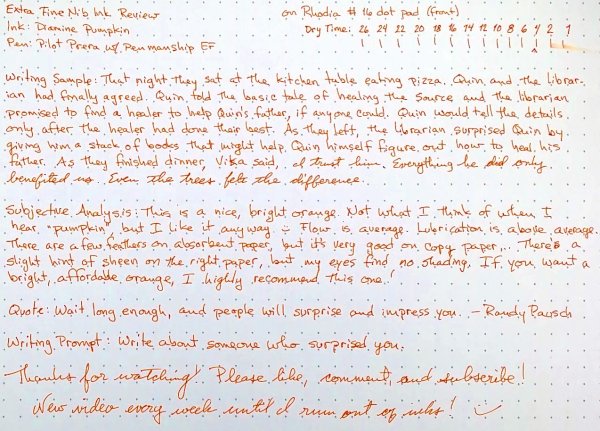 Extra Fine Nib Ink Review on Rhodia #16 dot pad (front)
Ink: Diamine Pumpkin Dry Time: 26 24 22 20 18 16 14 12 10 8 6 4 2 1
Pen: Pilot Prera w/ Penmanship EF
Writing Sample: That night they sat at the kitchen table eating pizza. Quin and the librar-
ian had finally agreed. Quin told the basic tale of healing the Source and the librarian
promised to find a healer to help Quin's father, if anyone could. Quin would tell the details
only after the healer had done their best. As they left, the librarian surprised Quin by
giving him a stack of books that might help Quin himself figure out how to heal his
father. As they finished dinner, Vika said, I trust him. Everything he did only
benefited us. Even the trees felt the difference.
Subjective Analysis: This is a nice, bright orange. Not what I think of when I
hear "pumpkin", but I like it anyway. :) Flow is average. Lubrication is above average.
There are a few feathers on absorbent paper, but it's very good on copy paper... There's a
slight hint of sheen on the right paper, but my eyes find no shading. If you want a
bright, affordable orange, I highly recommend this one!
Quote: Wait long enough, and people will surprise and impress you. - Randy Pausch
Writing Prompt: Write about someone who surprised you.
Thanks for watching! Please like, comment, and subscribe!
New video every week until I run out of inks! :)